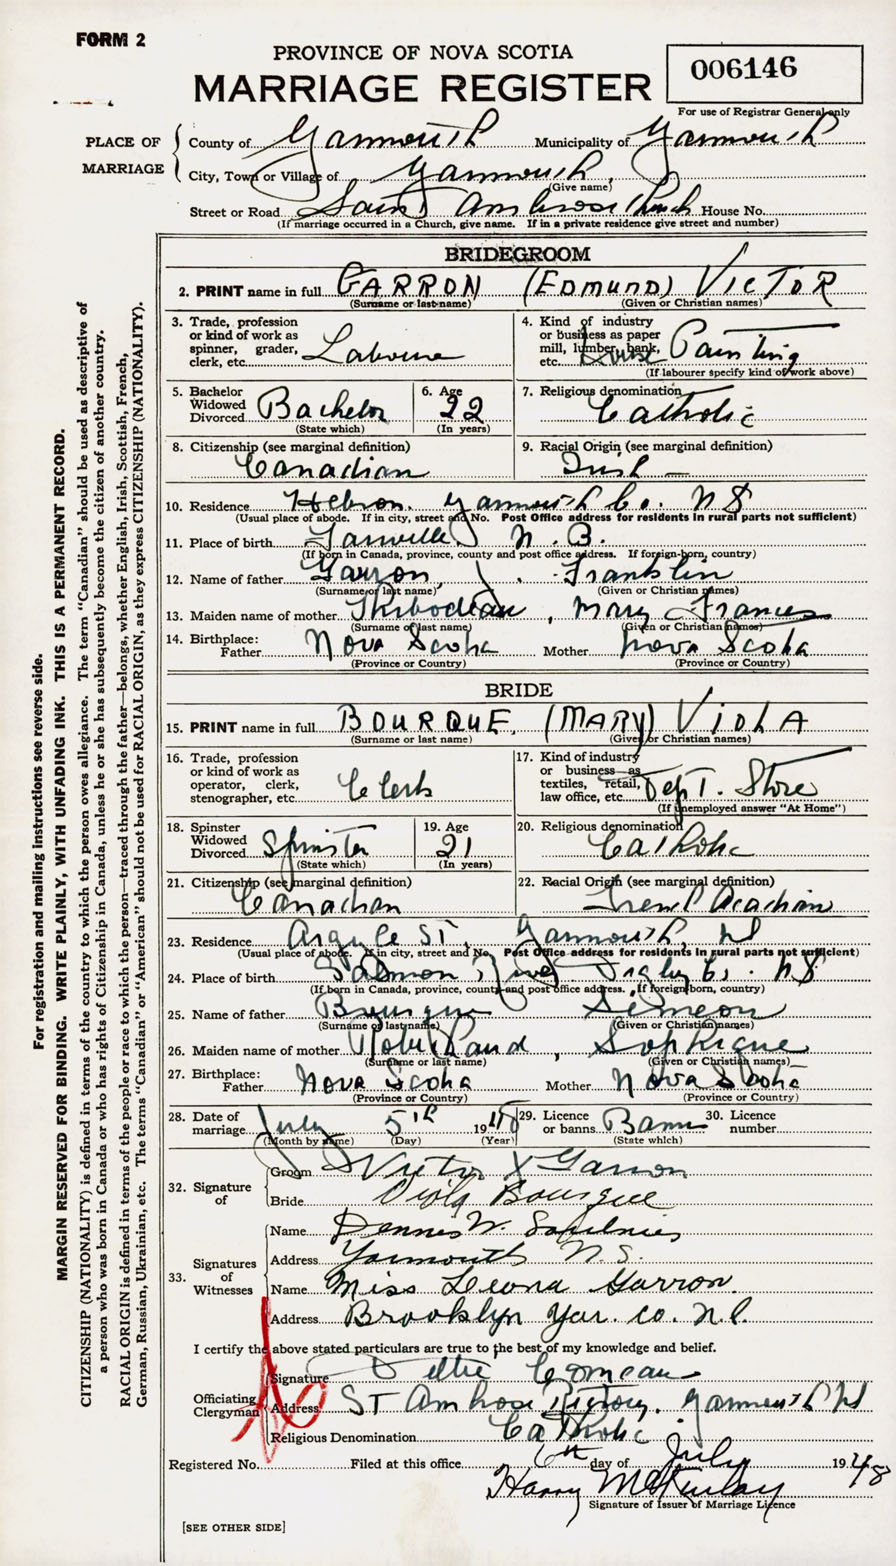 FORM 2
PROVINCE OF NOVA SCOTIA
MARRIAGE REGISTER
006146
For use of Registrar General only
PLACE OF MARRIAGE
County of Yarmouth Municipality of Yarmouth
City, Town or Village of Yarmouth
(Give name)
Street or Road Saint Ambrose Church House No.
(If marriage occurred in a Church, give name. If in a private residence give street and number)
BRIDEGROOM
2. PRINT name in full GARRON (EDMUND) VICTOR
(Surname or last name) (Given or Christian names)
3. Trade, profession or kind of work as spinner, grader, clerk, etc.
4. Kind of industry or business as paper mill, lumber, bank, etc. Painting
(If labourer specify kind of work above)
5. Bachelor Widowed Divorced Bachelor
(State which)
6. Age 22
(In years)
7. Religious denomination Catholic
8. Citizenship (see marginal definition)
Canadian
9. Racial Origin (see marginal definition)
Irish
10. Residence Hebron, Yarmouth Co. NS
(Usual place of abode. If in city, street and No. Post Office address for residents in rural parts not sufficient)
11. Place of birth N. B.
(If born in Canada, province, county and post office address. If foreign-born, country)
12. Name of father Garron, Franklin
(Surname or last name) (Given or Christian names)
13. Maiden name of mother Thibodeau, Mary Frances
(Surname of last name) (Given or Christian names)
14. Birthplace: Father Nova Scotia Mother Nova Scotia
(Province or Country) (Province or Country)
BRIDE
15. PRINT name in full BOURQUE, (MARY) VIOLA
(Surname or last name) (Given or Christian names)
16. Trade, profession or kind of work as operator, clerk, stenographer, etc. Clerk
17. Kind of industry or business as textiles, retail, law office, etc. Dept. Store
(If unemployed answer "At Home")
18. Spinster Widowed Divorced Spinster
(State which)
19. Age 21
(In years)
20. Religious denomination
Catholic
21. Citizenship (see marginal definition)
Canadian
22. Racial Origin (see marginal definition)
French Acadian
23. Residence Argyle St, Yarmouth, NS
(Usual place of abode. If in city, street and No. Post Office address for residents in rural parts not sufficient)
24. Place of birth Salmon River Digby Co. NS
(If born in Canada, province, county and post office address. If foreign-born, country)
25. Name of father Bourque Simeon
(Surname of last name) (Given or Christian names)
26. Maiden name of mother Robichaud, Sophie
(Surname or last name) (Given or Christian names)
27. Birthplace: Father Nova Scotia Mother Nova Scotia
(Province or Country) (Province or Country)
28. Date of marriage July 5th 1948
(Month by name) (Day) (Year)
29. Licence or banns Banns
(State which)
30. Licence number
32. Signature of
Groom Victor X Garron
Bride Viola Bourque
33. Signatures of Witnesses
Name Dennis W. Saulnier
Address Yarmouth N.S.
Name Miss Leona Garron
Address Brooklyn Yar. Co. N.S.
I certify the above stated particulars are true to the best of my knowledge and belief.
Officiating Clergyman
Signature Comeau
Address St Ambrose Rectory, Yarmouth NS
Religious Denomination Catholic
Registered No. Filed at this office 6th day of July 1948
Harry McKinlay
Signature of Issuer of Marriage Licence
[SEE OTHER SIDE]
For registration and mailing instructions see reverse side.
MARGIN RESERVED FOR BINDING. WRITE PLAINLY, WITH UNFADING INK. THIS IS A PERMANENT RECORD.
CITIZENSHIP (NATIONALITY) is defined in terms of the country to which the person owes allegiance. The term "Canadian" should be used as descriptive of
a person who was born in Canada or who has rights of Citizenship in Canada, unless he or she has subsequently become the citizen of another country.
RACIAL ORIGIN is defined in terms of the people or race to which the person—traced through the father—belongs, whether English, Irish, Scottish, French,
German, Russian, Ukrainian, etc. The terms "Canadian" or "American" should not be used for RACIAL ORIGIN, as they express CITIZENSHIP (NATIONALITY).